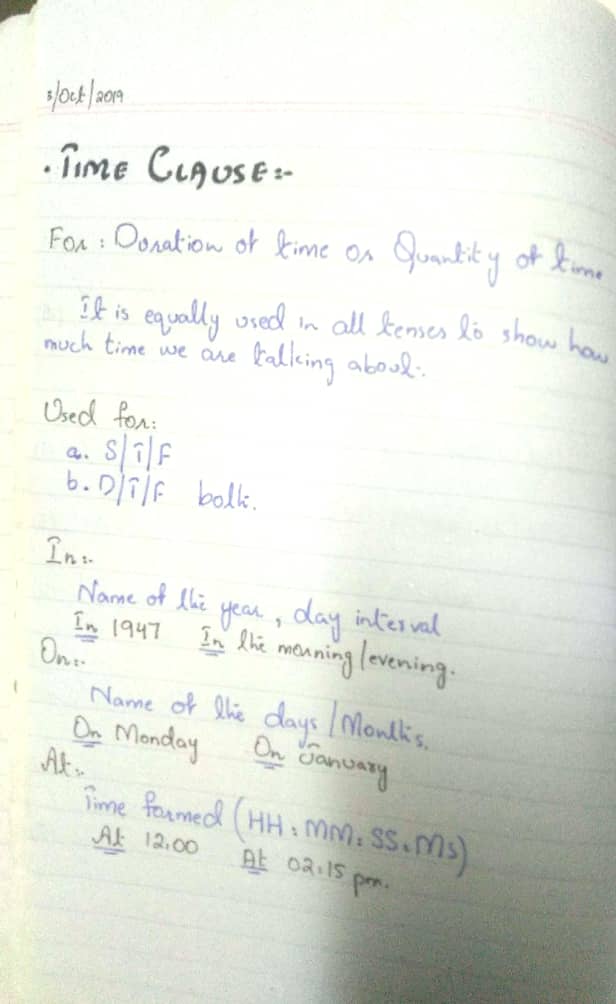 3/Oct/2019
• TIME CLAUSE:-
For : Duration of time or Quantity of time
It is equally used in all tenses to show how
much time we are talking about:.
Used for:
a. S/T/F
b. D/T/F both.
In:-
Name of the year, day interval
In 1947 In the morning/evening.
On:-
Name of the days/Months.
On Monday On January
At:-
Time formed (HH:MM:SS:Ms)
At 12:00 At 02:15 pm.